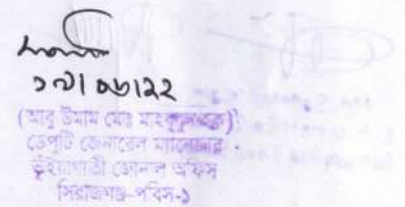 ১৭/০৬/২২
(আবু উমাম মোঃ মাহবুবুল হক)
ডেপুটি জেনারেল ম্যানেজার
ভূঁইয়াগাতী জোনাল অফিস
সিরাজগঞ্জ-পবিস-১